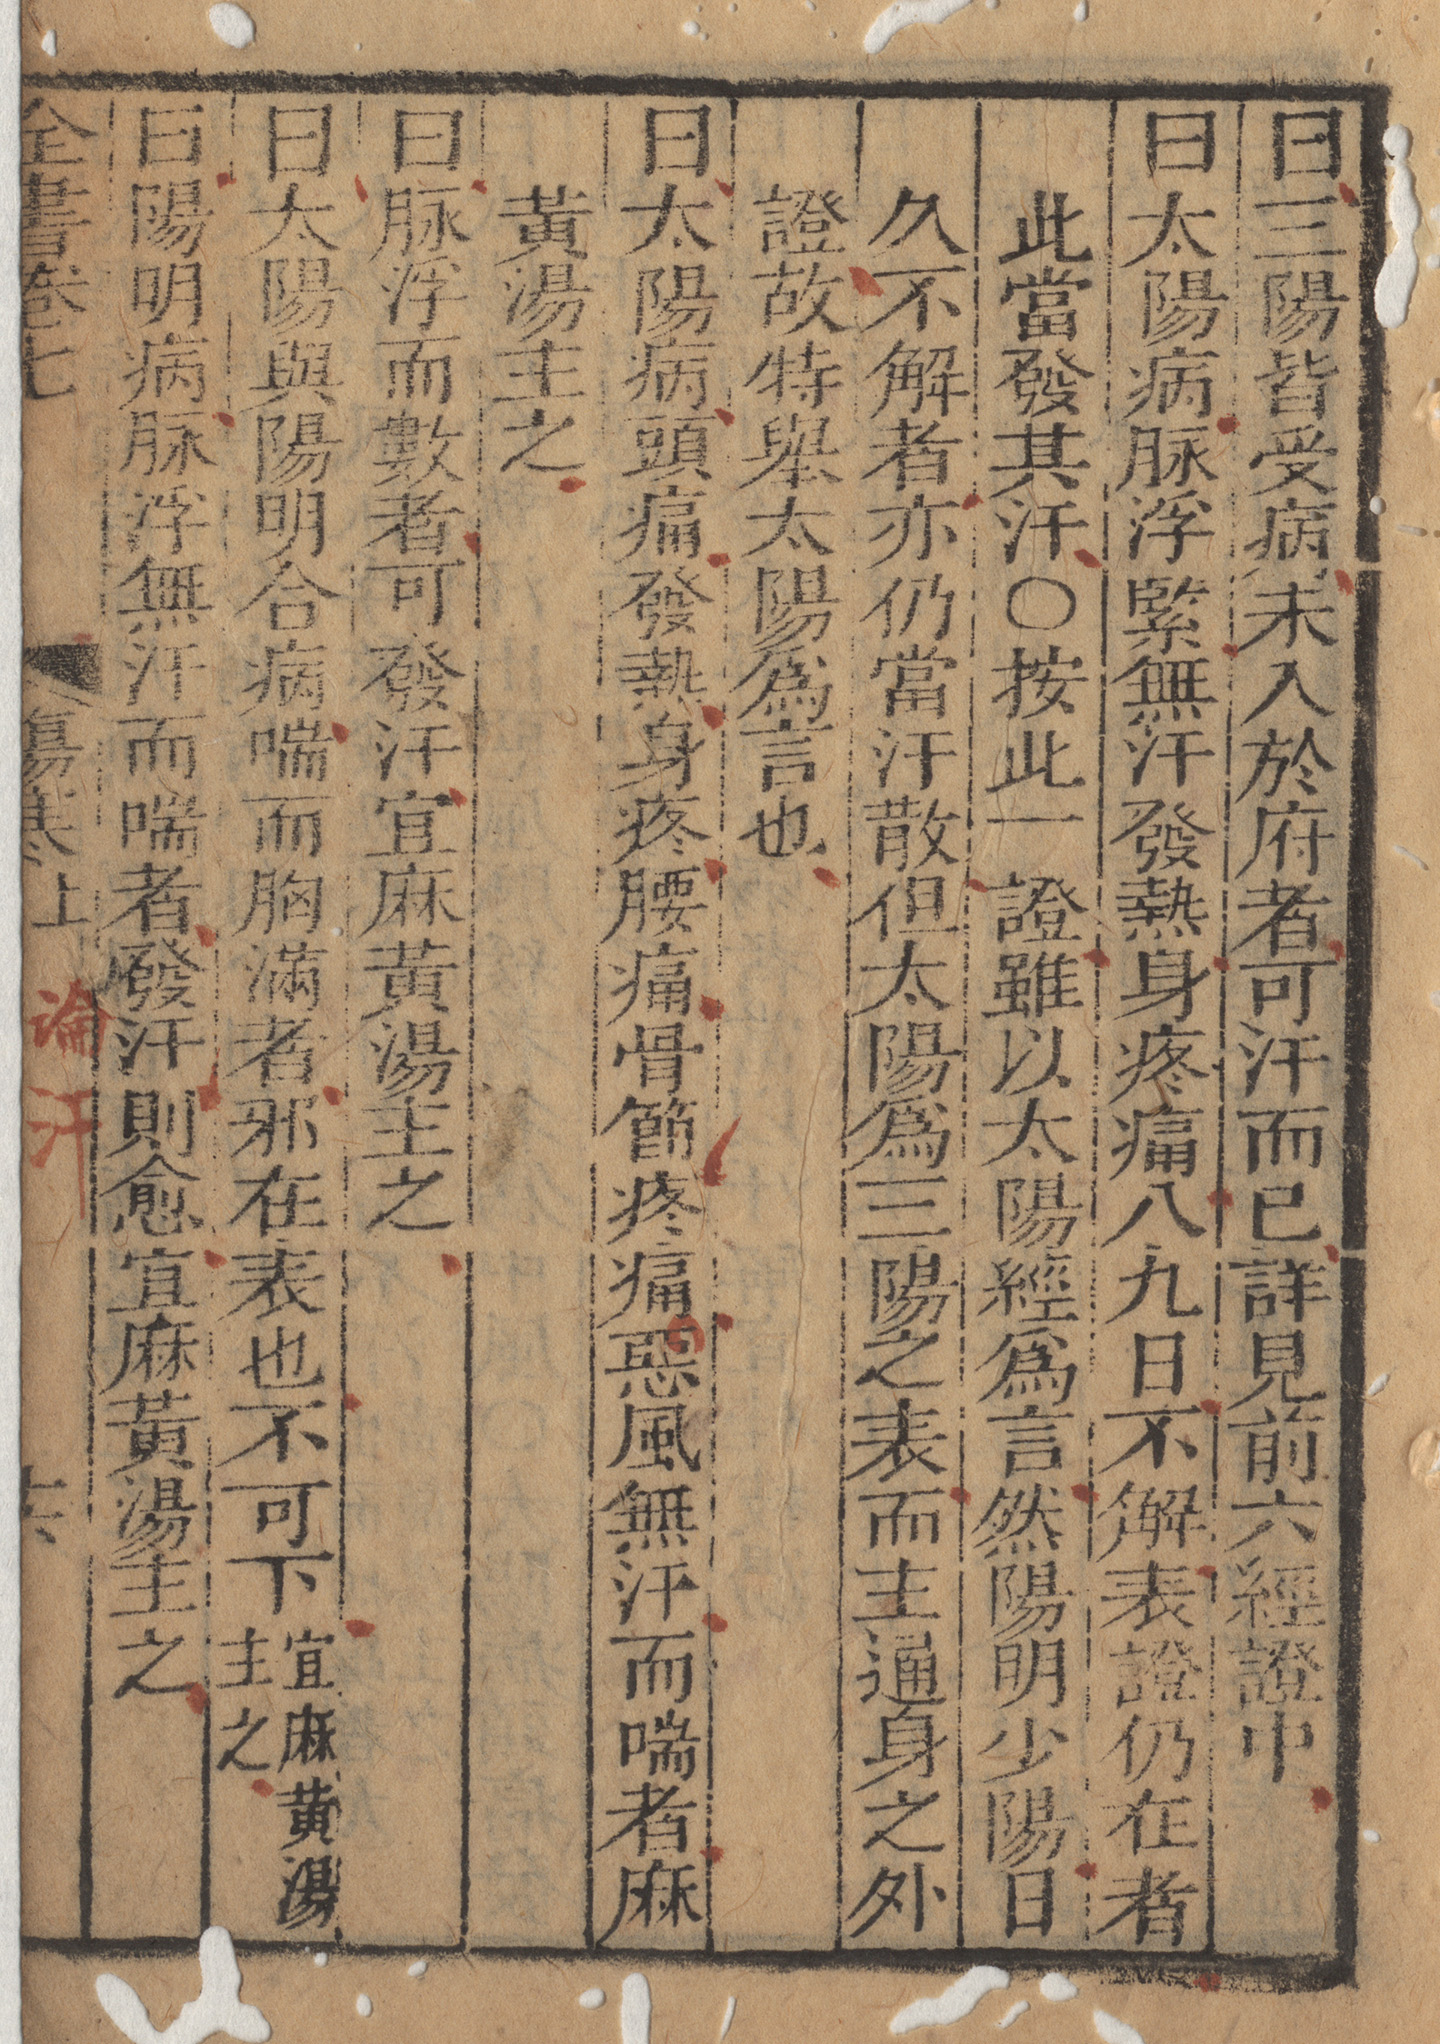 曰三陽皆受病未入於府者可汗而已詳見前六經證中
曰太陽病脉浮緊無汗發熱身疼痛八九日不解表證仍在者
此當發其汗〇按此一證雖以太陽經為言然陽明少陽日
久不解者亦仍當汗散但太陽為三陽之表而主通身之外
證故特舉太陽為言也
曰太陽病頭痛發熱身疼腰痛骨節疼痛惡風無汗而喘者麻
黃湯主之
曰脉浮而數者可發汗宜麻黃湯主之
曰太陽與陽明合病喘而胸滿者邪在表也不可下宜麻黃湯
主之
曰陽明病脉浮無汗而喘者發汗則愈宜麻黃湯主之
全書卷七
傷寒上
論汗
六